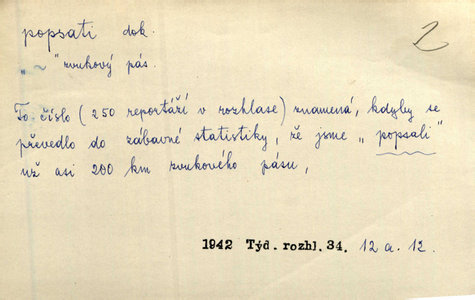 popsati dok.
2
„~" zvukový pás.
To číslo (250 reportáží v rozhlase) znamená, kdyby se
převedlo do zábavné statistiky, že jsme „popsali"
už asi 200 km zvukového pásu,
1942 Týd. rozhl. 34. 12 a. 12.